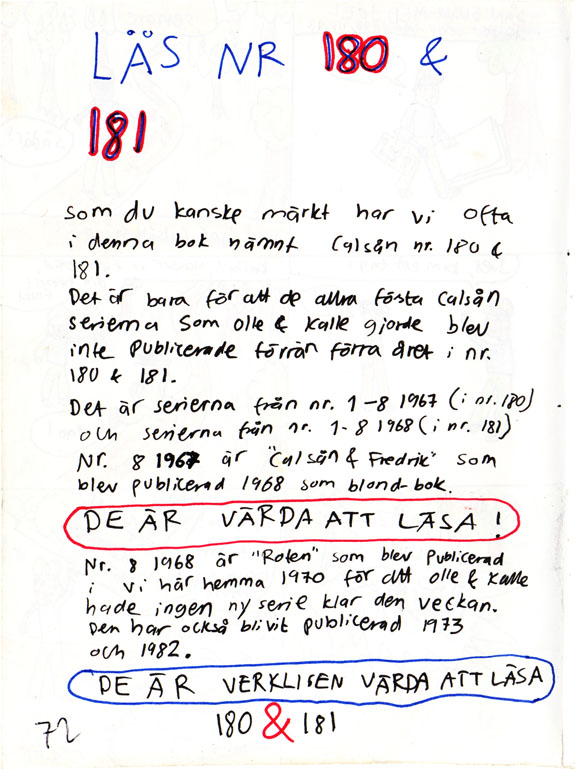 LÄS NR 180 &
181
som du kanske märkt har vi ofta
i denna bok nämnt Calsån nr. 180 &
181.
Det är bara för att de allra fösta Calsån
serierna som olle & kalle gjorde blev
inte publicerade förrän förra året i nr.
180 & 181.
Det är serierna från nr. 1-8 1967 (i nr. 180)
och serierna från nr. 1-8 1968 (i nr. 181)
Nr. 8 1967 är "Calsån & Fredrik" som
blev publicerad 1968 som bland-bok.
DE ÄR VÄRDA ATT LÄSA!
Nr. 8 1968 är "Roten" som blev publicerad
i vi här hemma 1970 för att olle & kalle
hade ingen ny serie klar den veckan.
Den har också blivit publicerad 1973
och 1982.
DE ÄR VERKLIGEN VÄRDA ATT LÄSA
180 & 181
72